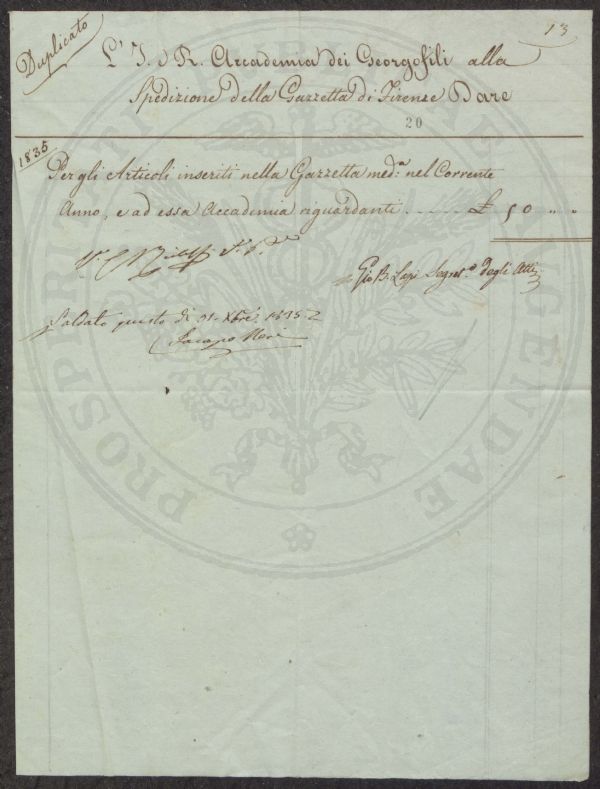 13
Duplicato
L'I. e R. Accademia dei Georgofili alla
Spedizione della Gazzetta di Firenze Dare
20
1835
Per gli Articoli inseriti nella Gazzetta med:ª nel Corrente
Anno, e ad essa Accademia riguardanti ..... £ 50 " "
Gio B. Lapi Segret.º degli Atti
Saldato questo dì 31. Xbre 1835
Jacopo Neri
PROSPERITATI PUBLICAE AUGENDAE